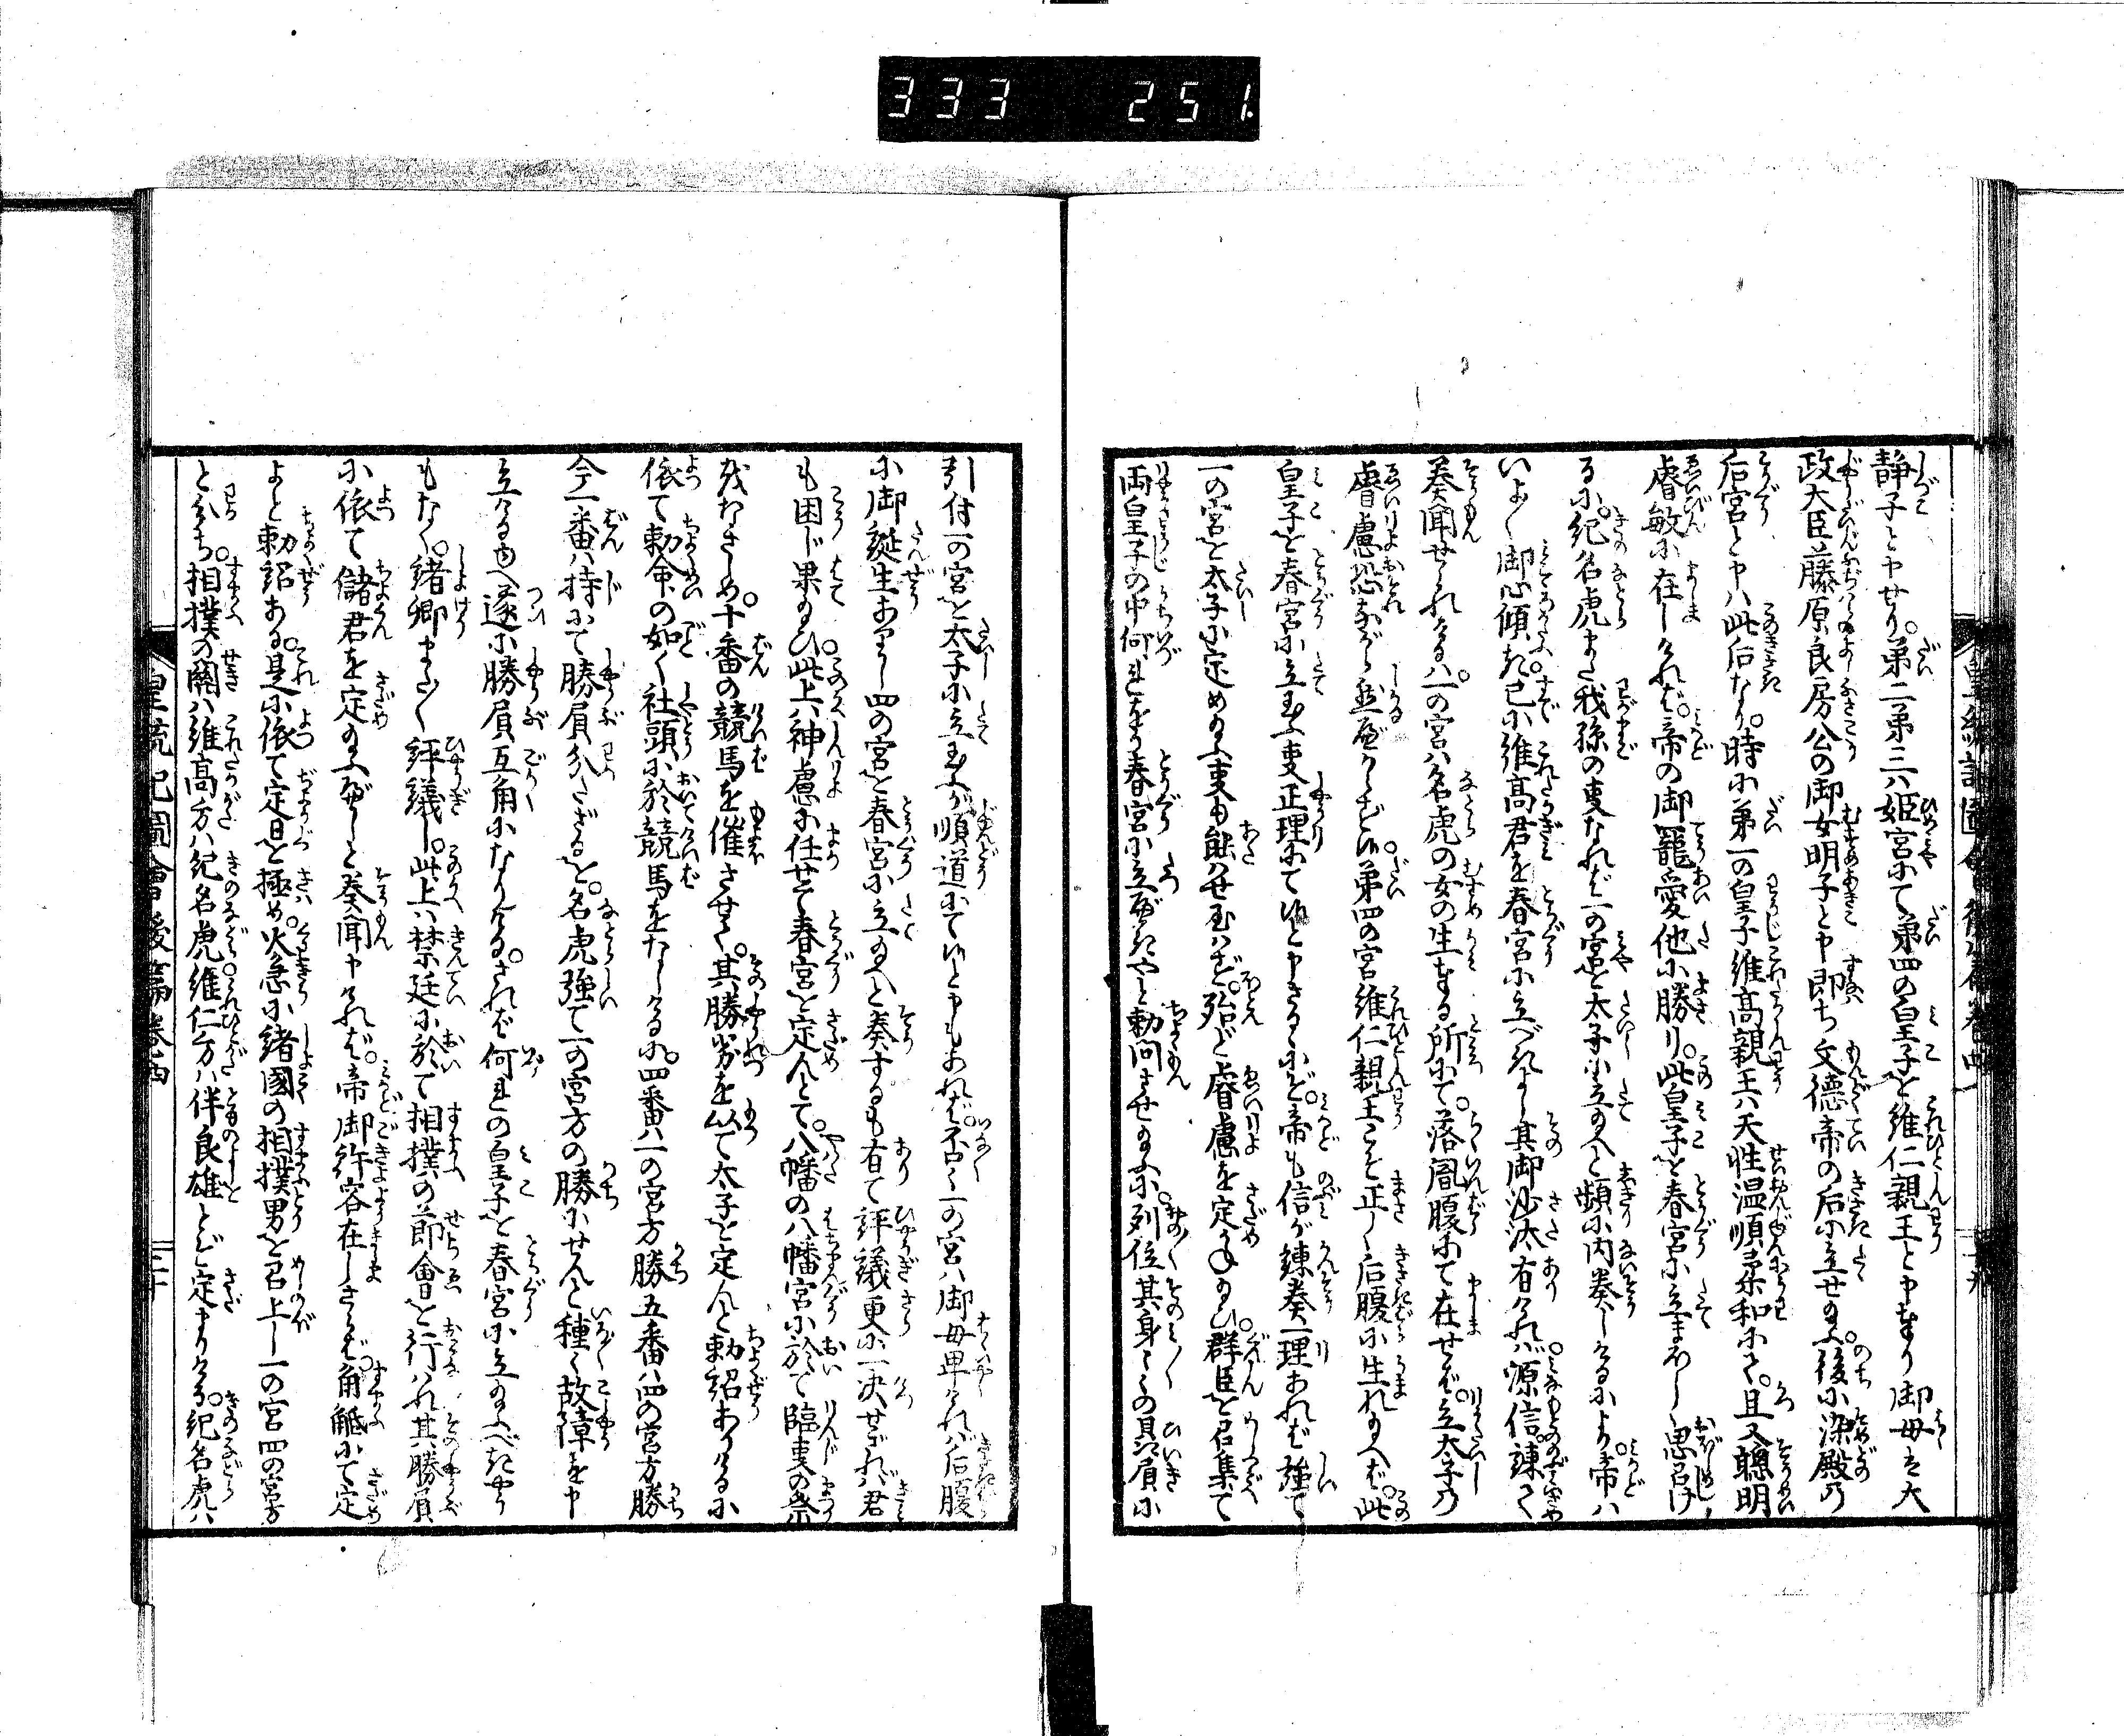 333 251.
静子と申せり。第二第三ハ姫宮にて第四の皇子を維仁親王と申奉り御母は大
政大臣藤原良房公の御女明子と申即ち文徳帝の后に立せ玉ふ後に染殿の
后宮と申ハ此后なり。時に第一の皇子維高親王ハ天性温順柔和にて。且又聰明
睿敏に在しけれバ。帝の御寵愛他に勝り。此皇子を春宮に立まほし思召け
るに。紀名虎また我孫の事なれバ一の宮を太子に立玉へと頻に内奏しけるにより帝ハ
いよ〱御心傾き已に維高君を春宮に立べきよし其御沙汰有けれバ源信。諫て
奏聞せられけるハ。一の宮ハ名虎の女の生奉る所にて。落胤腹にて在せバ。立太子の
睿慮恐ながら然るべからず候。第四の宮維仁親王こそ正しく后腹に生れ玉へバ。此
皇子を春宮に立玉ふ事正理にて候と申さるにぞ。帝も信が諫奏一理あれバ強て
一の宮を太子に定め玉ふ事も能ハせ玉ハず。殆ど睿慮を定かね玉ひ。群臣を召集て
両皇子の中何れをか春宮に立べきやと勅問させ玉ふに。列位其身〱の贔屓に
引付一の宮を太子に立玉ふが順道にて候と申もあれバ。否〱一の宮ハ御母卑けれバ后腹
に御誕生ありし四の宮を春宮に立玉へと奏するも有て評議更に一决せざれバ君
も困じ果玉ひ此上ハ神慮に任せて春宮を定んとて。八幡の八幡宮に於て臨事の祭
をなさしめ。十番の競馬を催させて。其勝劣を以て太子を定んと勅詔ありけるに
依て勅命の如く社頭に於競馬をなしけるに。四番ハ一の宮方勝五番ハ四の宮方勝
今一番ハ持にて勝屓分たざるを。名虎強て一の宮方の勝にせんと種〱故障を申
立けるゆへ遂に勝屓互角になりける。されバ何れの皇子を春宮に立玉ふべきやう
もなく。諸卿また〱評議し。此上ハ禁廷に於て相撲の節會を行ハれ其勝屓
に依て儲君を定玉ふべしと奏聞申けれバ。帝御許容在しさらバ角觝にて定
よと勅詔ある。是に依て定日を極め。火急に諸國の相撲男を召上し一の宮四の宮方
と分ち。相撲の關ハ維高方ハ紀名虎維仁方ハ伴良雄とぞ定まりける。紀名虎ハ
皇統記圖會後篇巻四
二十